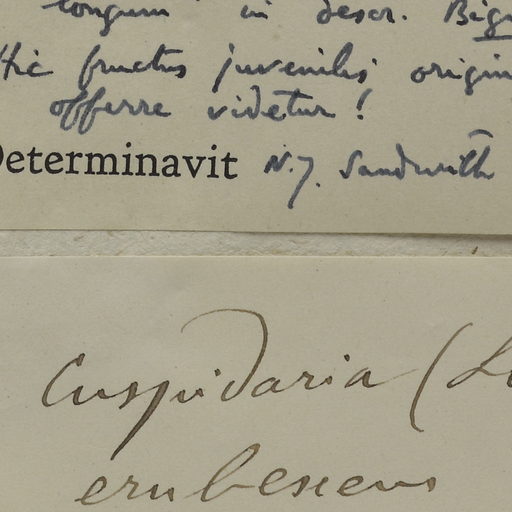 longum" in descr. Big
Hic fructus juvenilis; origin
offerre videtur!
Determinavit N.Y. Sandwith
Cuspidaria (
erubescens